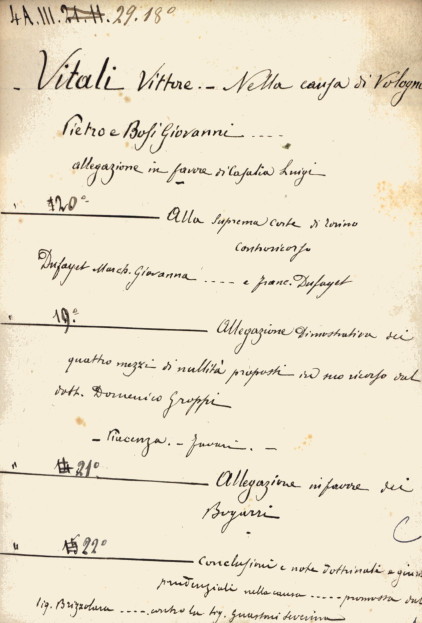 4A.III. 21.11. 29.18°
- Vitali Vittore. - Nella causa di Vologn
Pietro e Bosi Giovanni ....
allegazione in favore di Casalia Luigi
" 20° Alla Suprema Corte di Torino
Controricorso
Dufayet March. Giovanna .... e Franc. Dufayet
" 19° Allegazione Dimostrativa dei
quattro mezzi di nullità proposti in suo ricorso dal
dott. Domenico Groppi
- Piacenza. - . -
" 21° Allegazione in favore dei
" 22° Conclusioni e note dottrinali e giuris
prudenziali nella causa ..... promossa dal
Sig. Brizzolara .... contro la Sig.